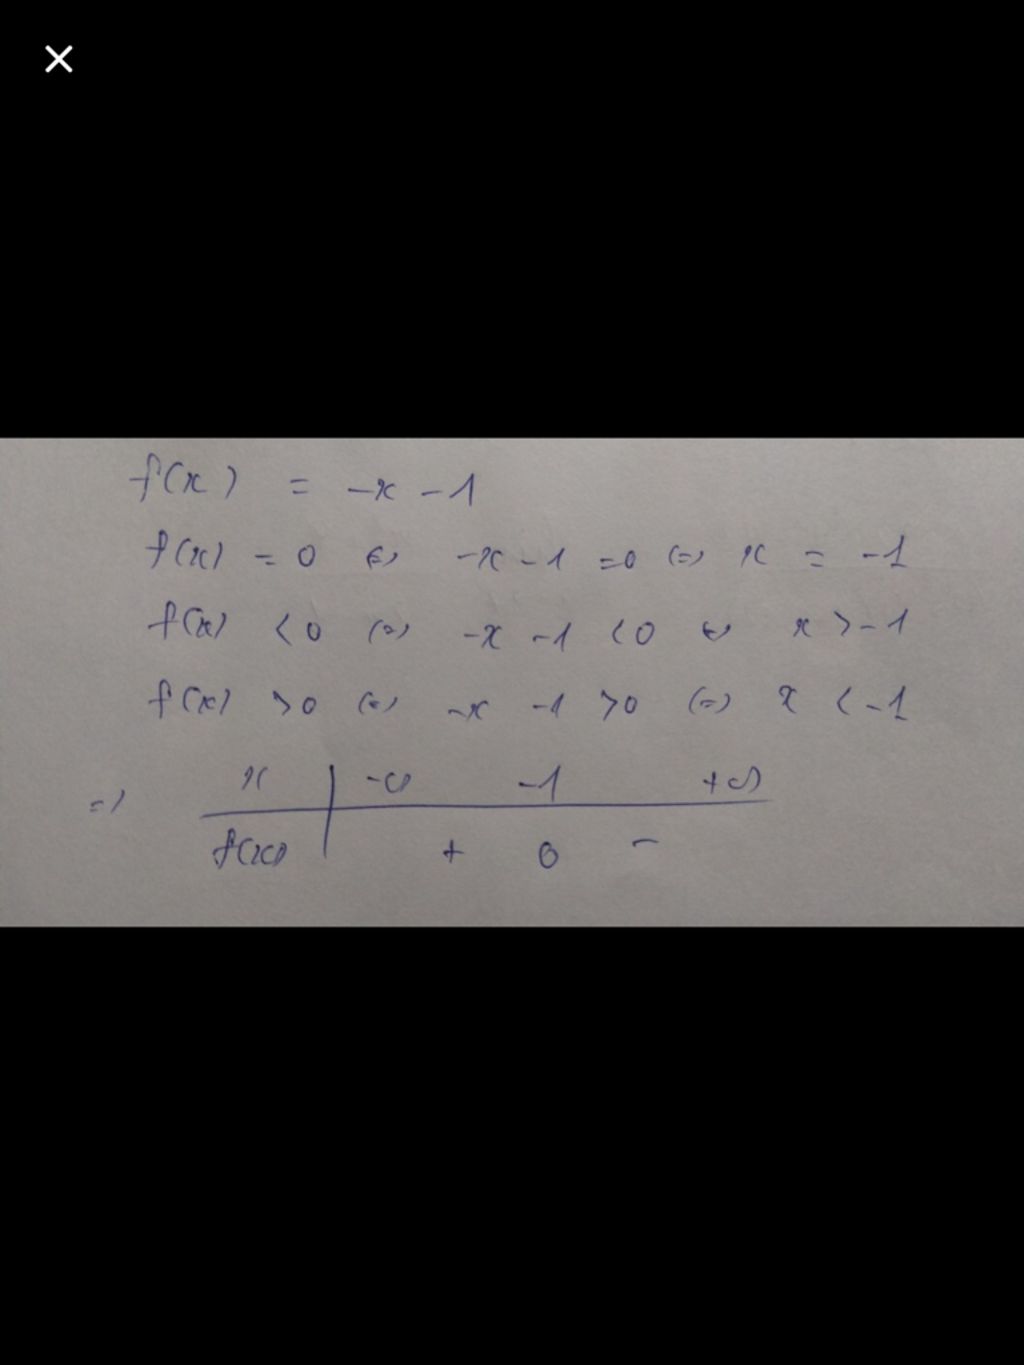 f(x) = -x - 1
f(x) = 0 (=) -x - 1 = 0 (=) x = -1
f(x) < 0 (=) -x - 1 < 0 (=) x > -1
f(x) > 0 (=) -x - 1 > 0 (=) x < -1
=) x | -∞ -1 +∞
f(x) | + 0 -